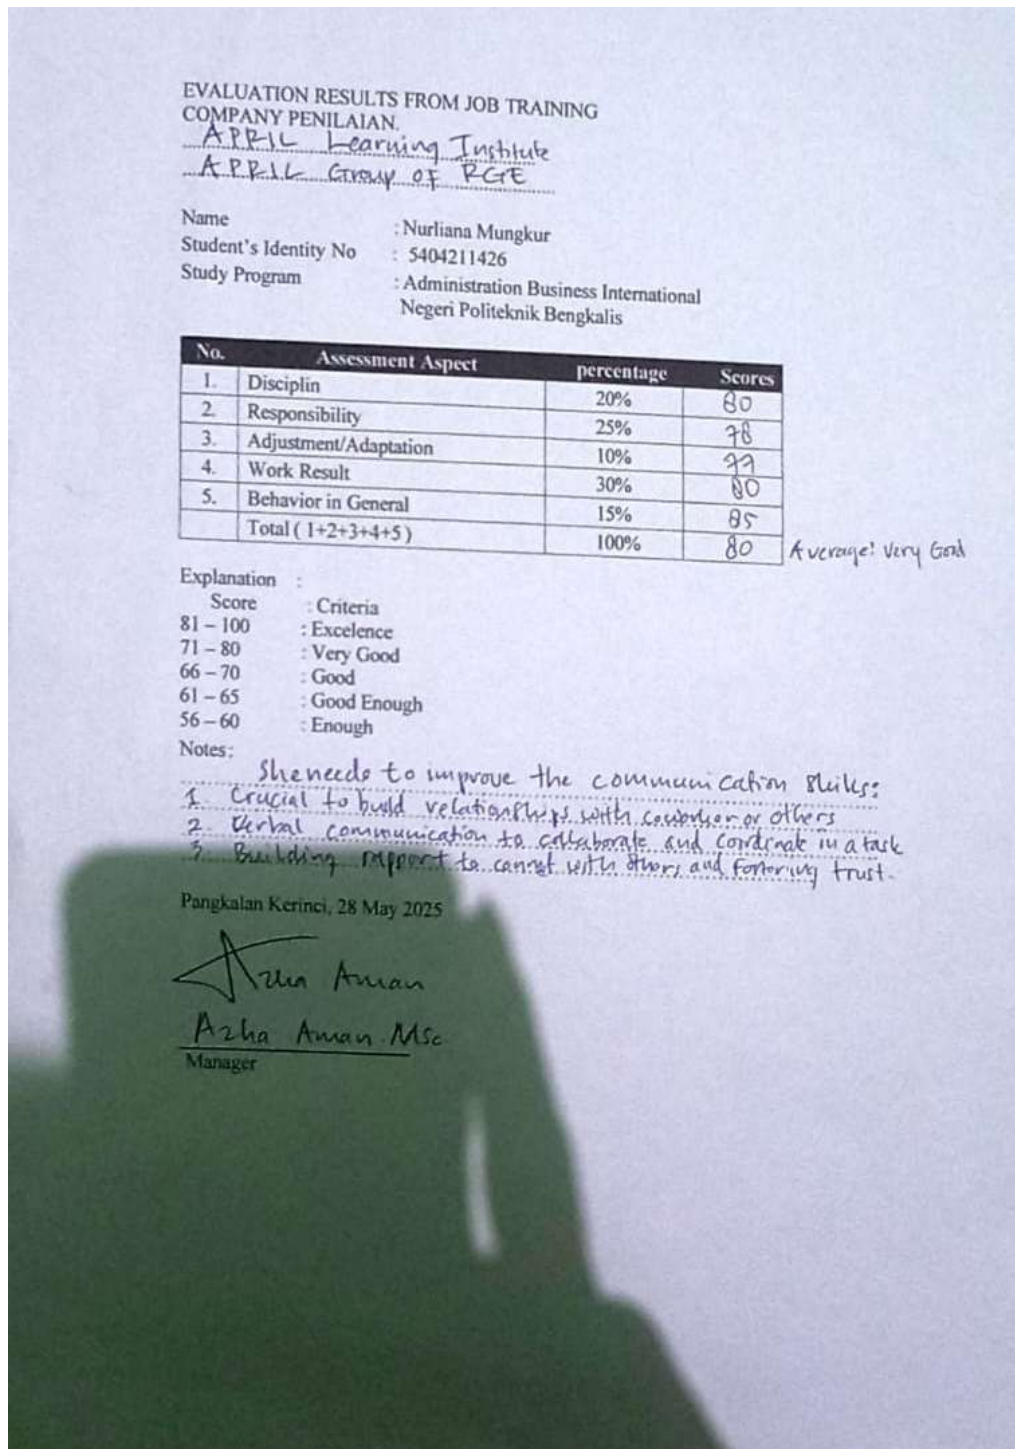 EVALUATION RESULTS FROM JOB TRAINING
COMPANY PENILAIAN.
APRIL Learning Institute
APRIL Group of RGE
Name : Nurliana Mungkur
Student's Identity No : 5404211426
Study Program : Administration Business International
Negeri Politeknik Bengkalis
No. Assessment Aspect percentage Scores
1. Disciplin 20% 80
2. Responsibility 25% 78
3. Adjustment/Adaptation 10% 77
4. Work Result 30% 80
5. Behavior in General 15% 85
Total ( 1+2+3+4+5 ) 100% 80 Average: Very Good
Explanation :
Score : Criteria
81 – 100 : Excelence
71 – 80 : Very Good
66 – 70 : Good
61 – 65 : Good Enough
56 – 60 : Enough
Notes:
She needs to improve the communication skills:
1. Crucial to build relationships with coworker or others
2. Verbal communication to collaborate and coordinate in a task
3. Building rapport to connect with others and fostering trust.
Pangkalan Kerinci, 28 May 2025
Azha Aman
Azha Aman. MSc
Manager